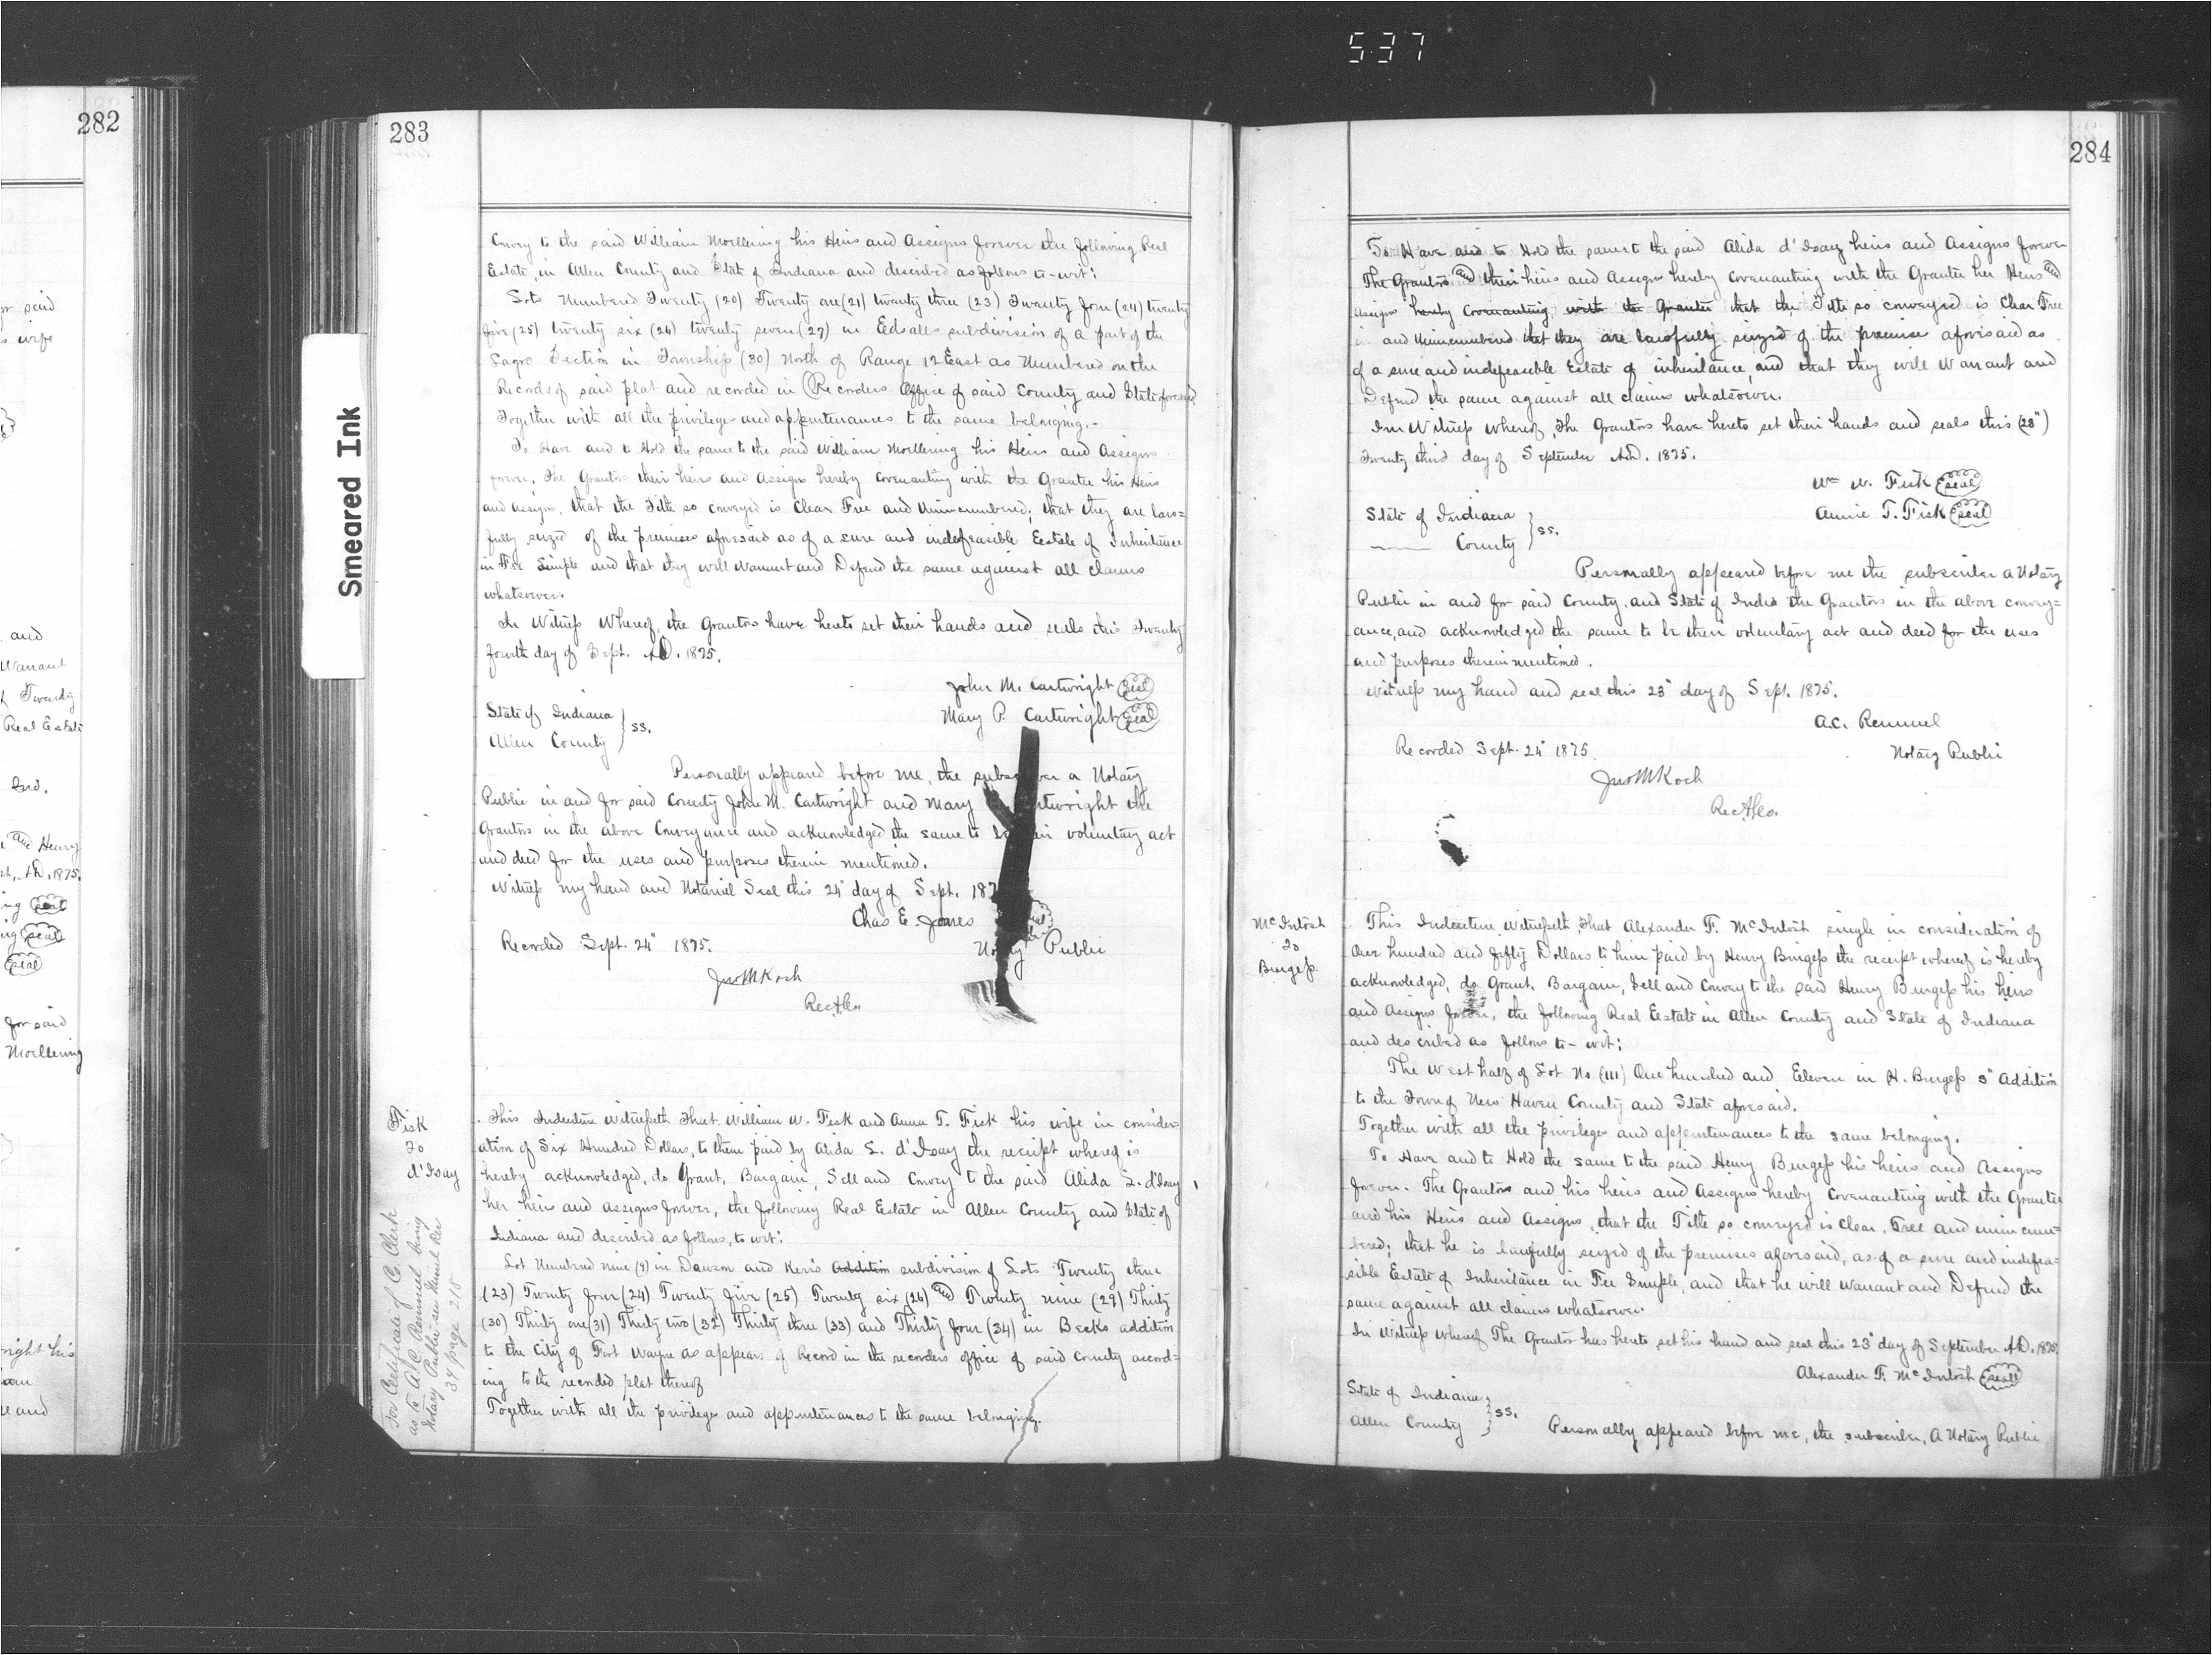 537
282
or said
s wife
and
Warrant
f Twenty
Real Estate
End.
and Henry
A.D. 1875.
ing seal
ing seal
seal
for said
Moellering
right his
and
Smeared Ink
283
Convey to the said William Moellering his Heirs and Assigns forever the following Real
Estate, in Allen County and State of Indiana and described as follows to-wit:
Lots Numbered Twenty (20) Twenty one (21) twenty three (23) Twenty four (24) twenty
five (25) twenty six (26) twenty seven (27) in Edsalls subdivision of a part of the
Section in Township (30) North of Range 12 East as Numbered on the
Records of said plat and recorded in Recorders Office of said County and State aforesaid
Together with all the privileges and appurtenances to the same belonging.-
To Have and to Hold the same to the said William Moellering his Heirs and Assigns
forever. The Grantors their heirs and Assigns hereby Covenanting with the Grantee his Heirs
and Assigns, that the Title so conveyed is Clear Free and Unincumbered; that they are law=
fully seized of the premises aforesaid as of a sure and indefeasible Eestate of Inheritance
in Fee Simple and that they will Warrant and Defend the same against all claims
whatsoever.
In Witness Whereof, the Grantors have hereto set their hands and seals this Twenty
fourth day of Sept. A.D. 1875.
John M. Cartwright seal
Mary P. Cartwright seal
State of Indiana
Allen County } ss.
Personally appeared before me, the subscriber a Notary
Public in and for said County John M. Cartwright and Mary Cartwright the
Grantors in the above Conveyance and acknowledged the same to be their voluntary act
and deed for the uses and purposes therein mentioned.
Witness my hand and Notarial Seal this 24" day of Sept. 187
Chas E. Jones
Recorded Sept. 24" 1875. Notary Public
Jno M Koch
Rec A Co.
Fisk
to
d'Isay
This Indenture Witnesseth That William W. Fisk and Anna T. Fisk his wife in consider
ation of Six Hundred Dollars, to them paid by Alida L. d'Isay the receipt whereof is
hereby acknowledged, do Grant, Bargain, Sell and Convey to the said Alida L. d'Isay
her heirs and assigns forever, the following Real Estate in Allen County and State of
Indiana and described as follows, to wit:
Lot Numbered nine (9) in Dawson and Kers Addition subdivision of Lots Twenty three
(23) Twenty four (24) Twenty five (25) Twenty six (26) and Twenty nine (29) Thirty
(30) Thirty one (31) Thirty two (32) Thirty three (33) and Thirty four (34) in Becks addition
to the City of Fort Wayne as appears of Record in the recorders office of said County accord=
ing to the recorded plat thereof
Together with all the privileges and appurtenances to the same belonging.
For Certificate of C. Clerk
as to A. C. Remmel being
Notary Public see Miscel Rec
34 page 218
284
To Have and to Hold the same to the said Alida d'Isay heirs and Assigns forever
The Grantors and their heirs and Assigns hereby Covenanting with the Grantee her Heirs and
Assigns hereby Covenanting with the Grantee that the Title so conveyed is Clear Free
and Unincumbered that they are lawfully seized of the premise aforesaid as
of a sure and indefeasible Estate of inheritance, and that they will Warrant and
Defend the same against all claims whatsoever.
In Witness whereof, The Grantors have hereto set their hands and seals this (23")
Twenty third day of September A.D. 1875.
Wm W. Fisk seal
Annie T. Fisk seal
State of Indiana
County } ss.
Personally appeared before me the subscriber a Notary
Public in and for said County and State of Inda the Grantors in the above convey=
ance, and acknowledged the same to be their voluntary act and deed for the uses
and purposes therein mentioned.
Witness my hand and seal this 23" day of Sept. 1875.
A.C. Remmel
Recorded Sept. 24" 1875. Notary Public
Jno M Koch
Rec A Co.
McIntosh
to
Burgess.
This Indenture, Witnesseth, That Alexander F. McIntosh single in consideration of
One hundred and fifty Dollars to him paid by Henry Burgess the receipt whereof is hereby
acknowledged, do Grant, Bargain, Sell and Convey to the said Henry Burgess his heirs
and Assigns forever, the following Real Eestate in Allen County and State of Indiana
and described as follows to-wit:
The West half of Lot No (111) One hundred and Eleven in H. Burgess 3" Addition
to the Town of New Haven County and State aforesaid.
Together with all the privileges and appurtenances to the same belonging.
To Have and to Hold the same to the said Henry Burgess his heirs and Assigns
forever. The Grantor and his heirs and Assigns hereby Covenanting with the Grantee
and his Heirs and Assigns, that the Title so conveyed is Clear, Free and unincum=
bered; that he is lawfully seized of the premises aforesaid, as of a sure and indefea=
sible Estate of Inheritance in Fee Simple, and that he will Warrant and Defend the
same against all claims whatsoever.
In Witness whereof The Grantor has hereto set his hand and seal this 23" day of September A.D. 1875.
Alexander F. McIntosh seal
State of Indiana
Allen County } ss.
Personally appeared before me, the subscriber, A Notary Public